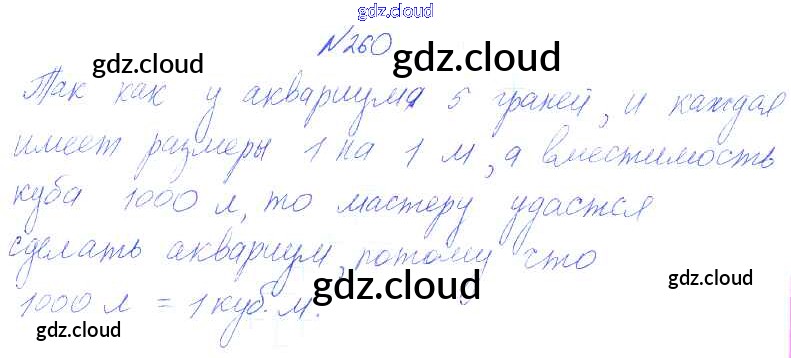 gdz.cloud
№260
gdz.cloud
gdz.cloud
Так как у аквариума 5 граней, и каждая
имеет размеры 1 на 1 м, а вместимость
куба 1000 л, то мастеру удастся
gdz.cloud
gdz.cloud
сделать аквариум, потому что
gdz.cloud
gdz.cloud
1000 л = 1 куб. м.
gdz.cloud